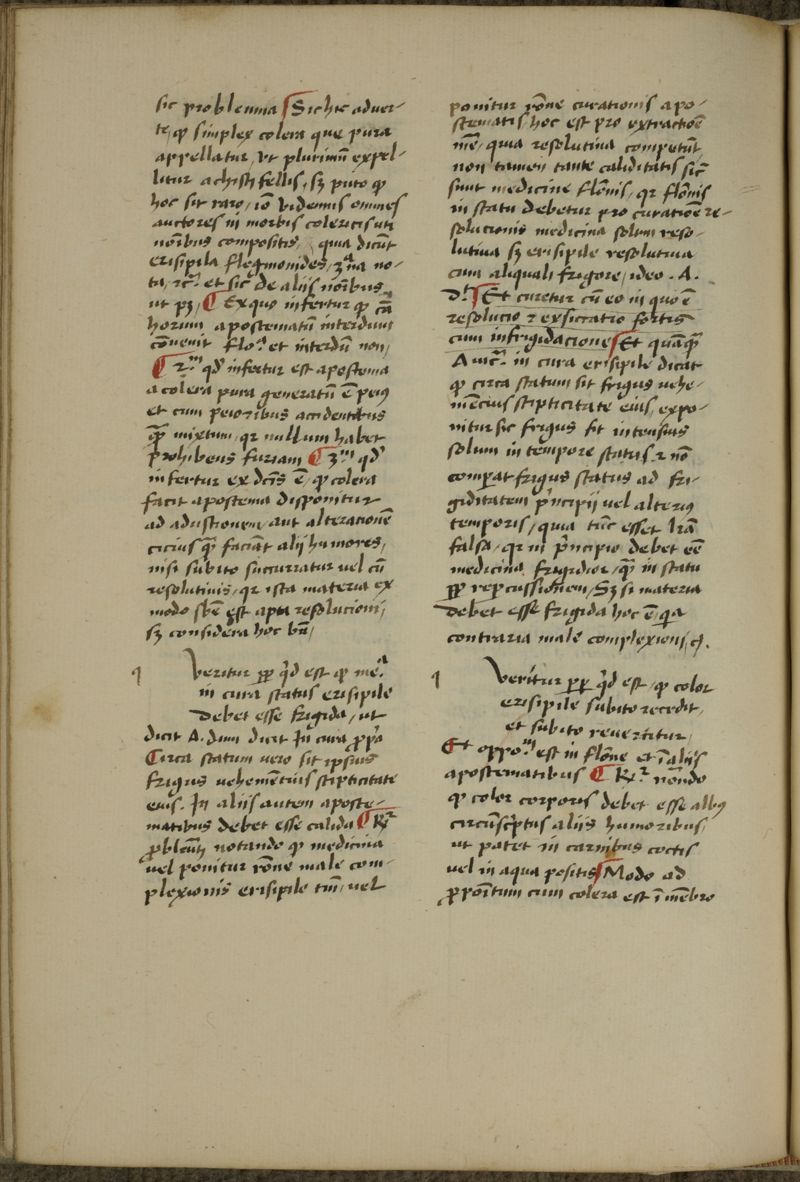 sic problemma Sic hic aduer-
te, qꝫ simplex colera que pura
appellatur, vt plurimū expel-
litur a chisti fellis, sꝫ puto qꝫ
hoc sit raro, iō videmus omnes
auctores in morbis colericis uti
noībus compositis, quia dicūt
erisipila flegmonides, 3ᵃ no-
ta, rc̄. et sic de aliis noībus
ut pꝫ, ¶ Ex quo infertur qꝫ cā
horum apostematū interdum
cōuenit flo.ⁱ et interdū non,
¶ 2.ᵐ qd̄ infertur est apostema
a colera pura generatū ē peius
et cum peioribus accidentibus
qꝫ̄ mixtum, qr nullum habet
prohibens furiam ¶ 3.ᵐ qd̄
infertur ex dcīs ē, qꝫ colera
facit apostema disponitur
ad adustionem, aut alterationē
cicius qꝫ̄ faciāt alij humores,
nisi subito succurratur uel cū
resolutiuis, qr ista materia ex
modo sbē est apta resolucioni,
sꝫ considera hoc bn̄,
¶ Veritur pp qd̄ est qꝫ me.ᵃ
in cura status erisipile
debet esse frigida, ut
dicit A. dum dicit In cura pp̄a
Circa statum uero sit ipsius
frigus uehemētius stipticitate
eius. In aliis autem aposte-
matibus debet esse calida ¶ R̄ᵗ
pbleūs notando qꝫ medicina
uel ponitur rōne male com-
plexionis erisipile tm̄, uel
ponitur rōne curationis apo-
stematis, hoc est pro extractōē
mē, quia resolutiua competūt
non tamen tante caliditatis sic̄
sunt medicine flōnis, qr flōnis
in statu debetur pro curatiōe re-
solucionis medicina solum reso-
lutiua sꝫ erisipile resolutiua
cum aliquali frigore, ideo . A.
D.ᵗ Et curetur cū eo in quo ē
resolucio et exsiccatio fortis
cum infrigidacione Et quāqꝫ̄
Auic̄. in cura erisipile dicat
qꝫ circa statum sit frigus uehe-
mēcius stipticitate eius, expo-
nitur sic frigus sit intensius
solum in tempore status et nō
comparat frigus status ad fri-
giditatem prīncipij uel alterius
temporis, quia tūc esset lrā
falsa, qr in prīncipio debet eē
medicina frigidior, qꝫ̄ in statu
pp repercussionem, Sꝫ si materia
debet esse frigida hoc ē, qꝫ a
contraria male complexioni, c̄.
¶ Veritur pp qd̄ est, qꝫ color
erisipile subito recedit,
et subito reuertitur,
Et oppo.ᵐ est in flōne et ī aliis
apostematibus ¶ R̄ᵗ nōndo
qꝫ color corporis debet esse albus
circūscrptus aliis humoribus,
ut patet in carnibus coctis
uel in aqua positis Modo ad
pporītum cum colera est ī mēbro